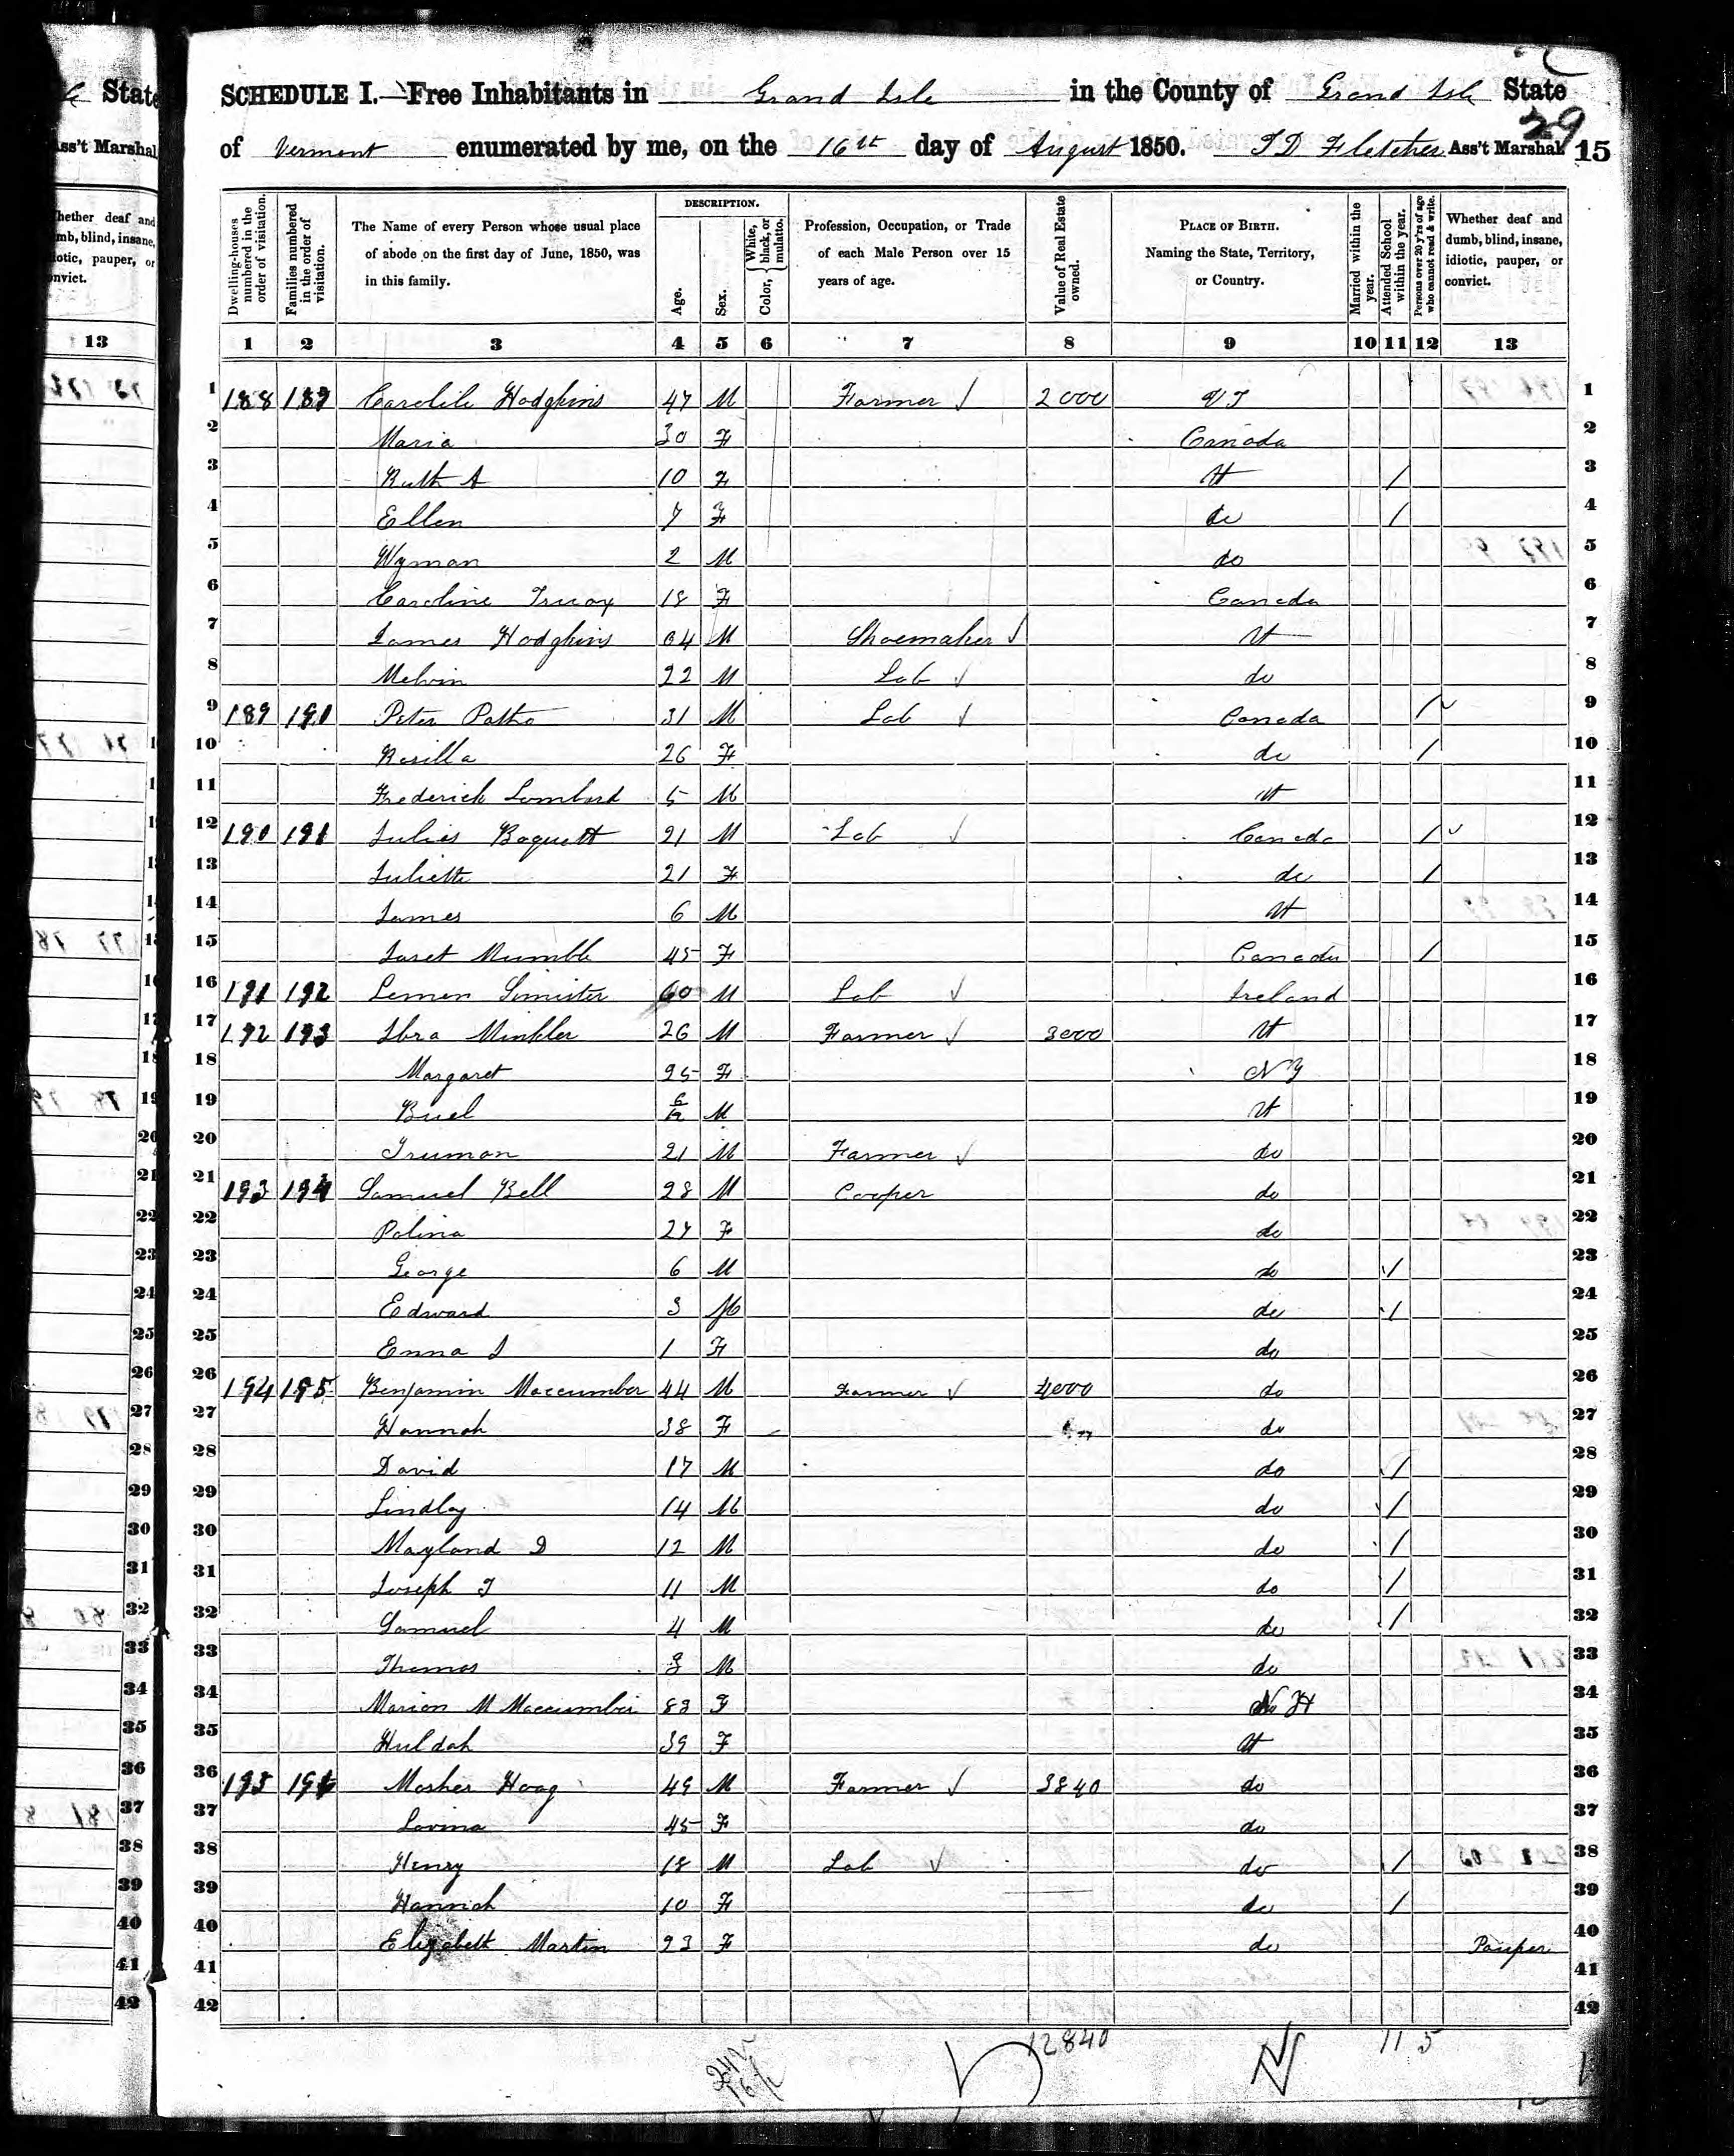 SCHEDULE I.—Free Inhabitants in Grand Isle in the County of Grand Isle State
of Vermont enumerated by me, on the 16th day of August 1850. T D Fletcher Ass't Marshal 29 15
DESCRIPTION.
Dwelling-houses numbered in the order of visitation. Families numbered in the order of visitation. The Name of every Person whose usual place of abode on the first day of June, 1850, was in this family. Age. Sex. Color, White, black, or mulatto. Profession, Occupation, or Trade of each Male Person over 15 years of age. Value of Real Estate owned. PLACE OF BIRTH. Naming the State, Territory, or Country. Married within the year. Attended School within the year. Persons over 20 y'rs of age who cannot read & write. Whether deaf and dumb, blind, insane, idiotic, pauper, or convict.
1 2 3 4 5 6 7 8 9 10 11 12 13
1 188 189 Hodgkins 47 M Farmer ✓ 2000 VT 1
2 Maria 30 F Canada 2
3 Ruth A 10 F Vt / 3
4 Ellen 7 F do / 4
5 Wyman 2 M do 5
6 Caroline Truax 18 F Canada 6
7 James Hodgkins 64 M Shoemaker ✓ Vt 7
8 Melvin 22 M Lab ✓ do 8
9 189 190 Peter 31 M Lab ✓ Canada / ✓ 9
10 Rosilla 26 F do / 10
11 Frederick Lombard 5 M Vt 11
12 190 191 Julius 21 M Lab ✓ Canada / ✓ 12
13 Juliette 21 F do / 13
14 James 6 M Vt 14
15 45 F Canada / 15
16 191 192 60 M Lab ✓ Ireland 16
17 192 193 Minkler 26 M Farmer ✓ 3000 Vt 17
18 Margaret 25 F N Y 18
19 Buel 6/12 M Vt 19
20 Truman 21 M Farmer ✓ do 20
21 193 194 Samuel Bell 28 M Cooper do 21
22 Polina 27 F do 22
23 George 6 M do / 23
24 Edward 3 M do / 24
25 Emma J 1 F do 25
26 194 195 Benjamin Maccumber 44 M Farmer ✓ 4000 do 26
27 Hannah 38 F do 27
28 David 17 M do / 28
29 Lindley 14 M do / 29
30 Mayland D 12 M do / 30
31 Joseph T 11 M do / 31
32 Samuel 4 M do / 32
33 Thomas 3 M do 33
34 Marion M Maccumber 83 F N H 34
35 Huldah 39 F Vt 35
36 195 196 Mosher Hoag 49 M Farmer ✓ 3840 do 36
37 Lovina 45 F do 37
38 Henry 18 M Lab ✓ do / 38
39 Hannah 10 F do / 39
40 Elizabeth Martin 23 F do Pauper 40
41 41
42 42
12840 11 5